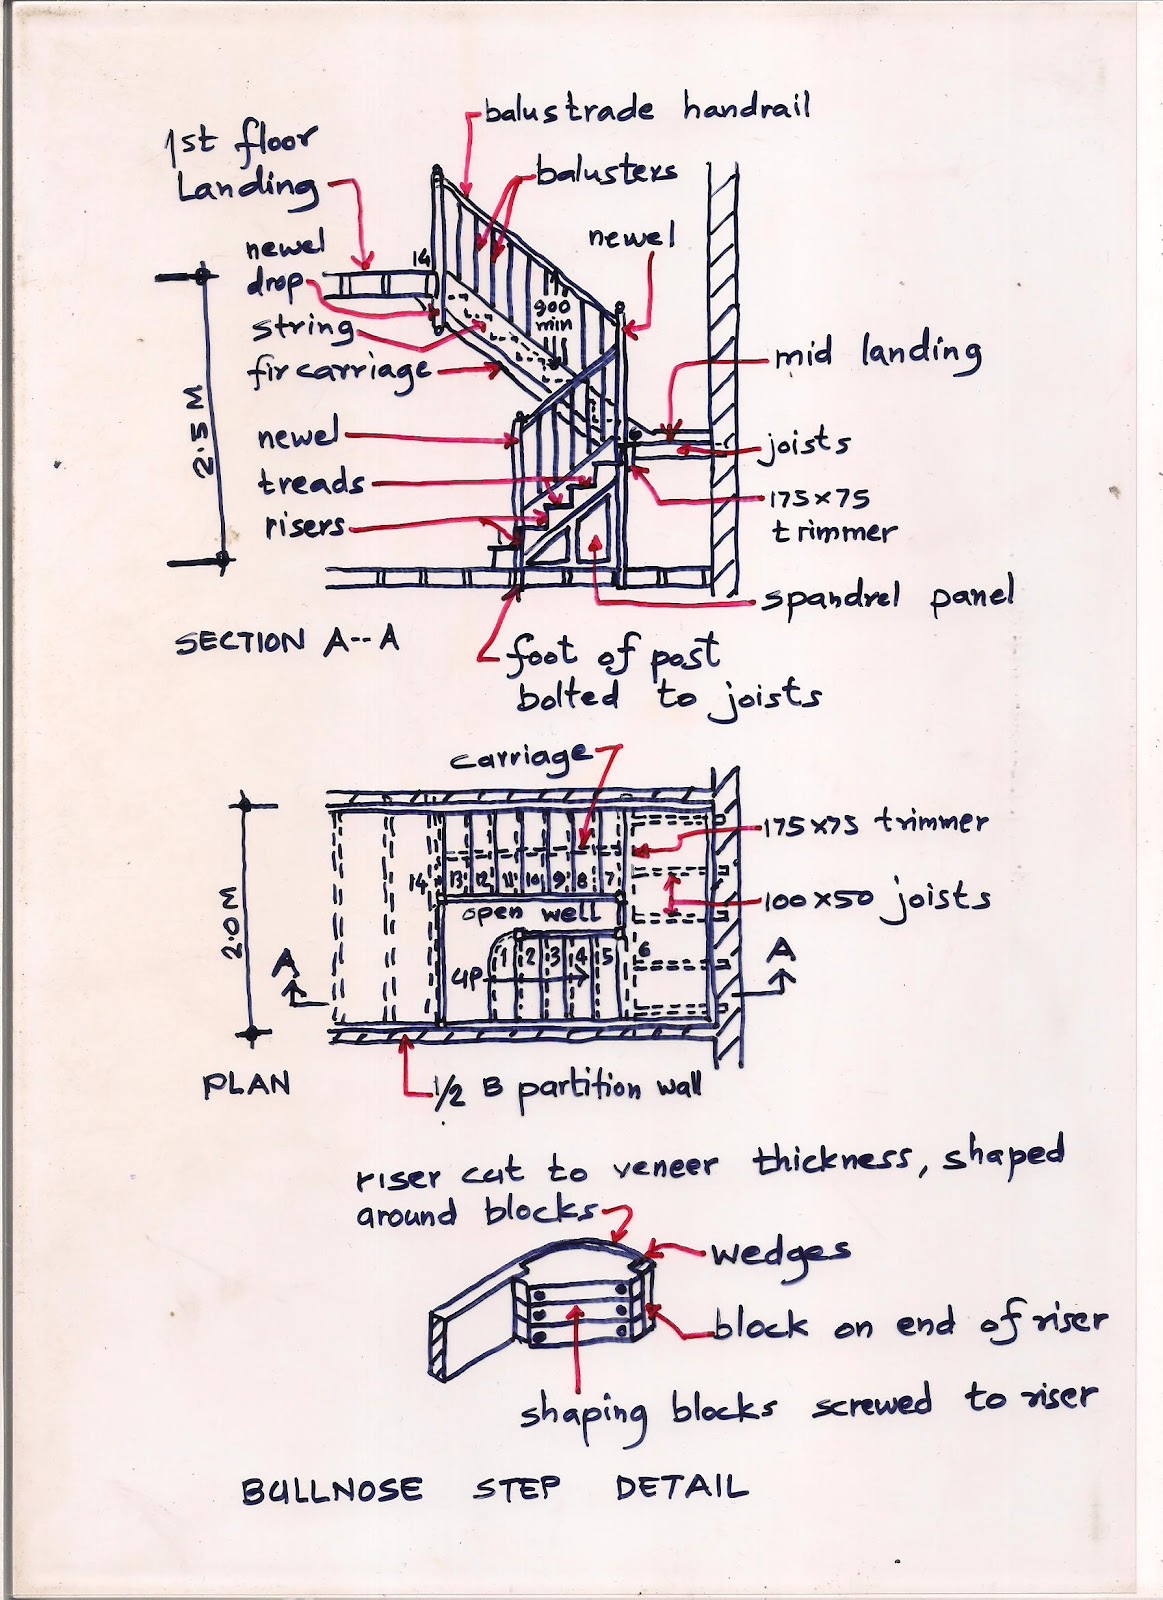 balustrade handrail
1st floor
Landing
balusters
newel
newel
drop
14
string
900
min
mid landing
fir carriage
2.5 M
newel
6
joists
treads
175×75
trimmer
risers
spandrel panel
SECTION A--A
foot of post
bolted to joists
carriage
175×75 trimmer
14 13 12 11 10 9 8 7
100×50 joists
open well
2.0 M
A
A
UP
1 2 3 4 5 6
PLAN
1/2 B partition wall
riser cut to veneer thickness, shaped
around blocks
wedges
block on end of riser
shaping blocks screwed to riser
BULLNOSE STEP DETAIL